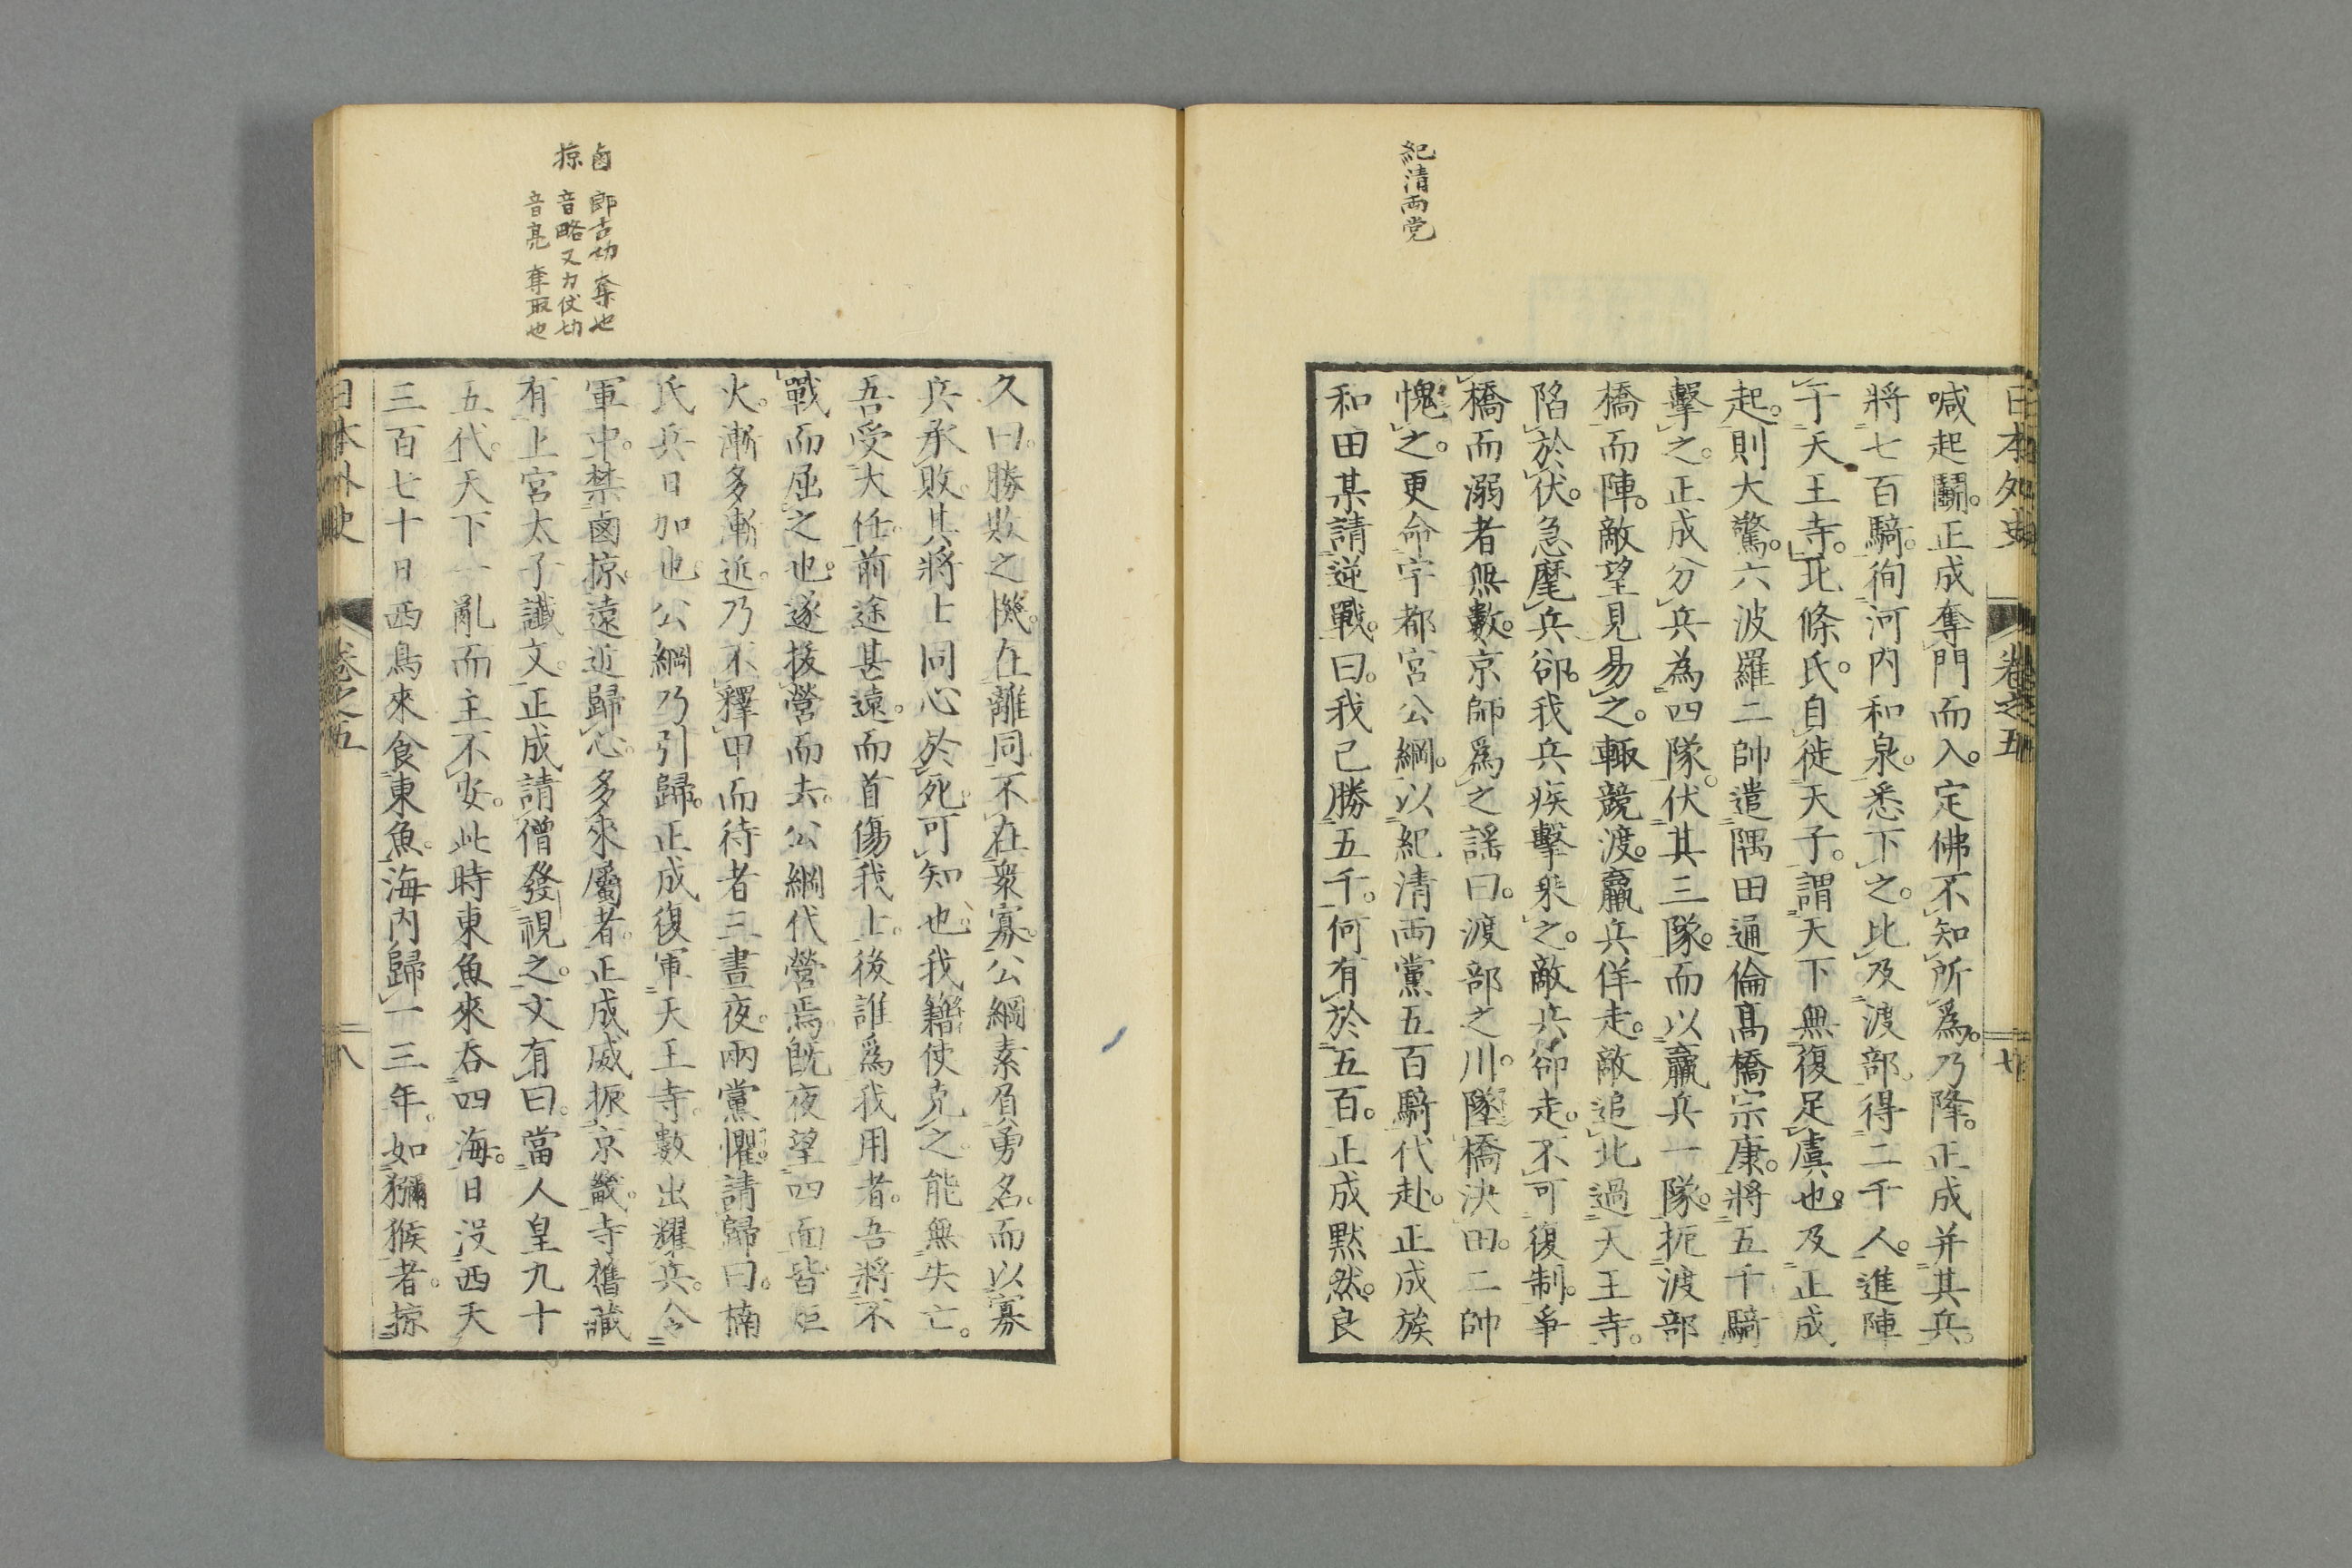 日本外史 卷之五 七
紀清両党
喊起鬭。正成奪門而入。定佛不知所爲。乃降。正成并其兵。
將七百騎。徇河内和泉。悉下之。比及渡部。得二千人。進陣
于天王寺。北條氏。自徙天子。謂天下無復足虞也。及正成
起。則大驚。六波羅二帥遣隅田通倫高橋宗康。將五千騎
擊之。正成分兵為四隊。伏其三隊。而以羸兵一隊。扼渡部
橋而陣。敵望見易之。輙競渡。羸兵佯走。敵追北過天王寺。
陷於伏。急麾兵卻。我兵疾擊乘之。敵兵卻走。不可復制。爭
橋而溺者無數。京師爲之謡曰。渡部之川。墜橋決田。二帥
愧之。更命宇都宮公綱。以紀清両黨五百騎代赴。正成族
和田某請逆戰。曰。我已勝五千。何有於五百。正成黙然。良
鹵 郎古切 奪也
掠 音略 又力仗切
音亮 奪取也
久曰。勝敗之機。在離同不在衆寡。公綱素負勇名。而以寡
兵承敗。其將士同心於死。可知也。我籍使克之。能無失亡。
吾受大任。前途甚遠。而首傷我士。後誰爲我用者。吾將不
戰而屈之也。遂拔營而去。公綱代營焉。既夜望四面。皆炬
火。漸多漸近。乃不釋甲而待者三晝夜。兩黨懼。請歸曰。楠
氏兵日加也。公綱乃引歸。正成復軍天王寺。數出耀兵。令
軍中。禁鹵掠。遠近歸心。多來屬者。正成威振京畿。寺舊藏
有上宮太子讖文。正成請僧發視之。文有曰。當人皇九十
五代。天下一亂而主不安。此時東魚來呑四海。日没西天
三百七十日西鳥來食東魚。海内歸一三年。如獼猴者。掠
日本外史 卷之五 八